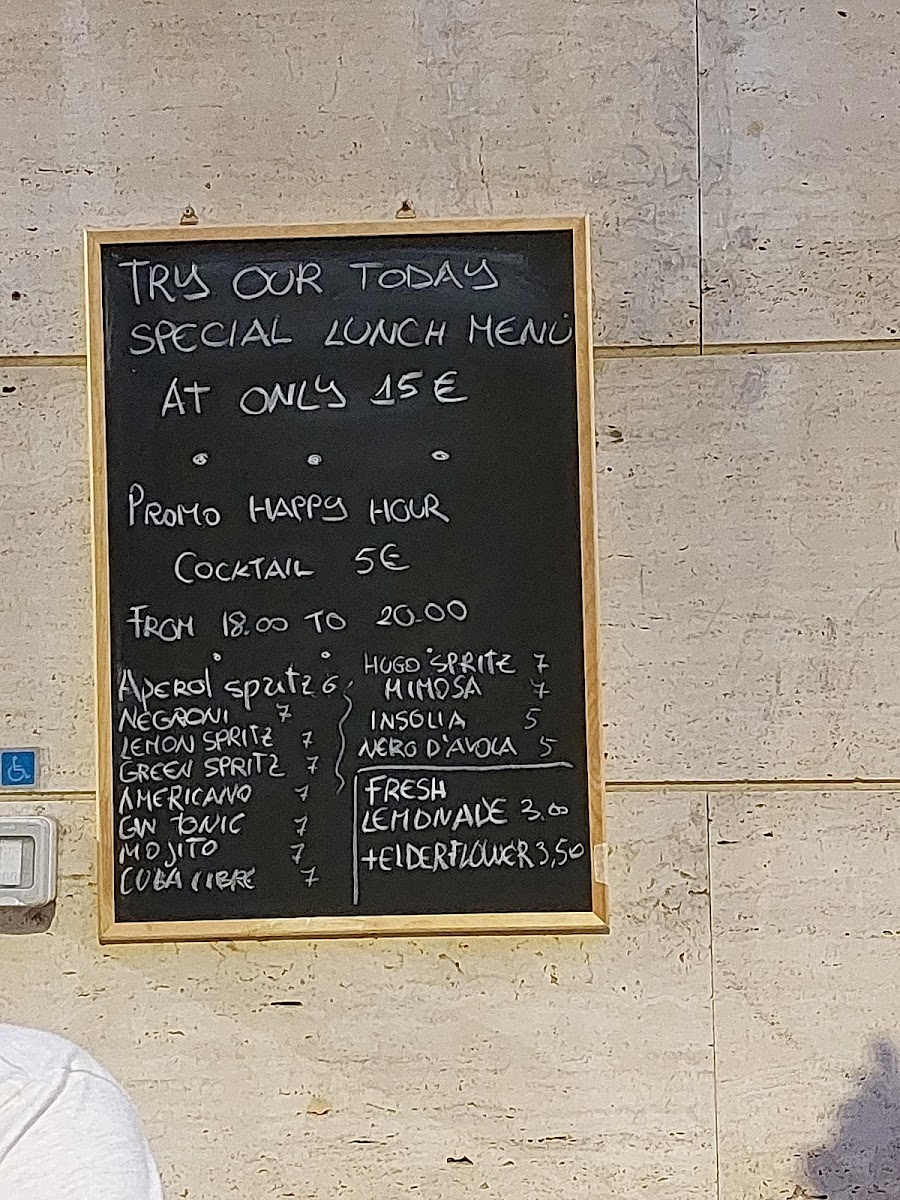 TRY OUR TODAY
SPECIAL LUNCH MENÙ
AT ONLY 15€
PROMO HAPPY HOUR
COCKTAIL 5€
FROM 18.00 TO 20.00
Aperol spritz 6
NEGRONI 7
LEMON SPRITZ 7
GREEN SPRITZ 7
AMERICANO 7
GIN TONIC 7
MOJITO 7
CUBA LIBRE 7
HUGO SPRITZ 7
MIMOSA 7
INSOLIA 5
NERO D'AVOLA 5
FRESH
LEMONADE 3.00
+ELDERFLOWER 3,50